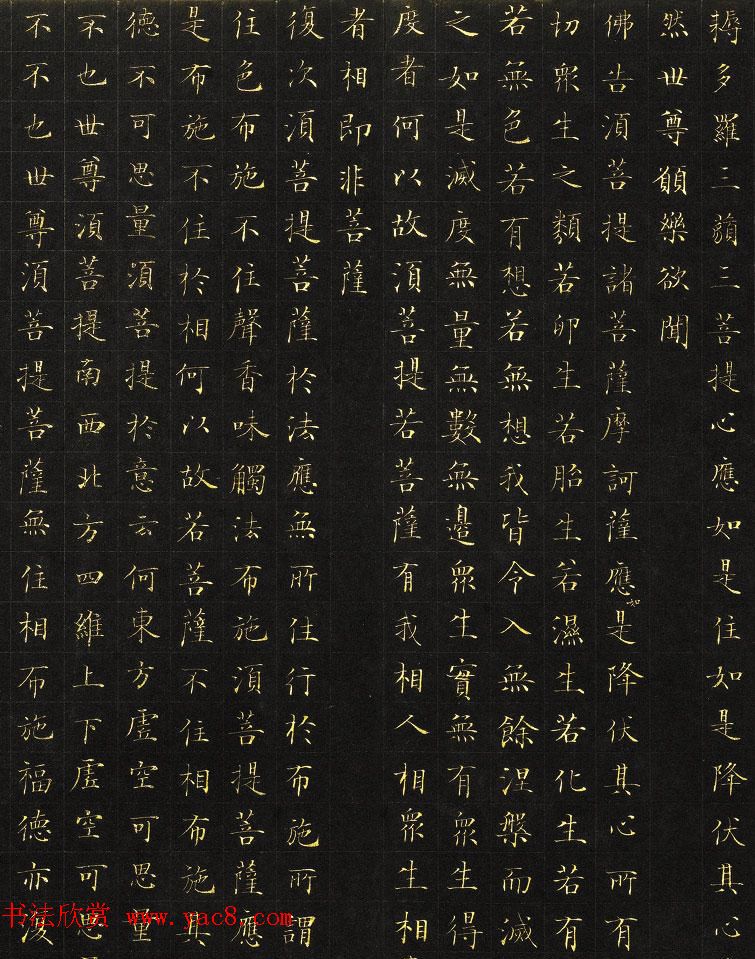 耨多羅三藐三菩提心應如是住如是降伏其心
然世尊願樂欲聞
佛告須菩提諸菩薩摩訶薩應如是降伏其心所有
切眾生之類若卵生若胎生若濕生若化生若有
若無色若有想若無想我皆令入無餘涅槃而滅
之如是滅度無量無數無邊眾生實無有眾生得
度者何以故須菩提若菩薩有我相人相眾生相
者相即非菩薩
復次須菩提菩薩於法應無所住行於布施所謂
住色布施不住聲香味觸法布施須菩提菩薩應
是布施不住於相何以故若菩薩不住相布施其
德不可思量須菩提於意云何東方虛空可思量
不也世尊須菩提南西北方四維上下虛空可思
不不也世尊須菩提菩薩無住相布施福德亦復
书法欣赏 www.yac8.com